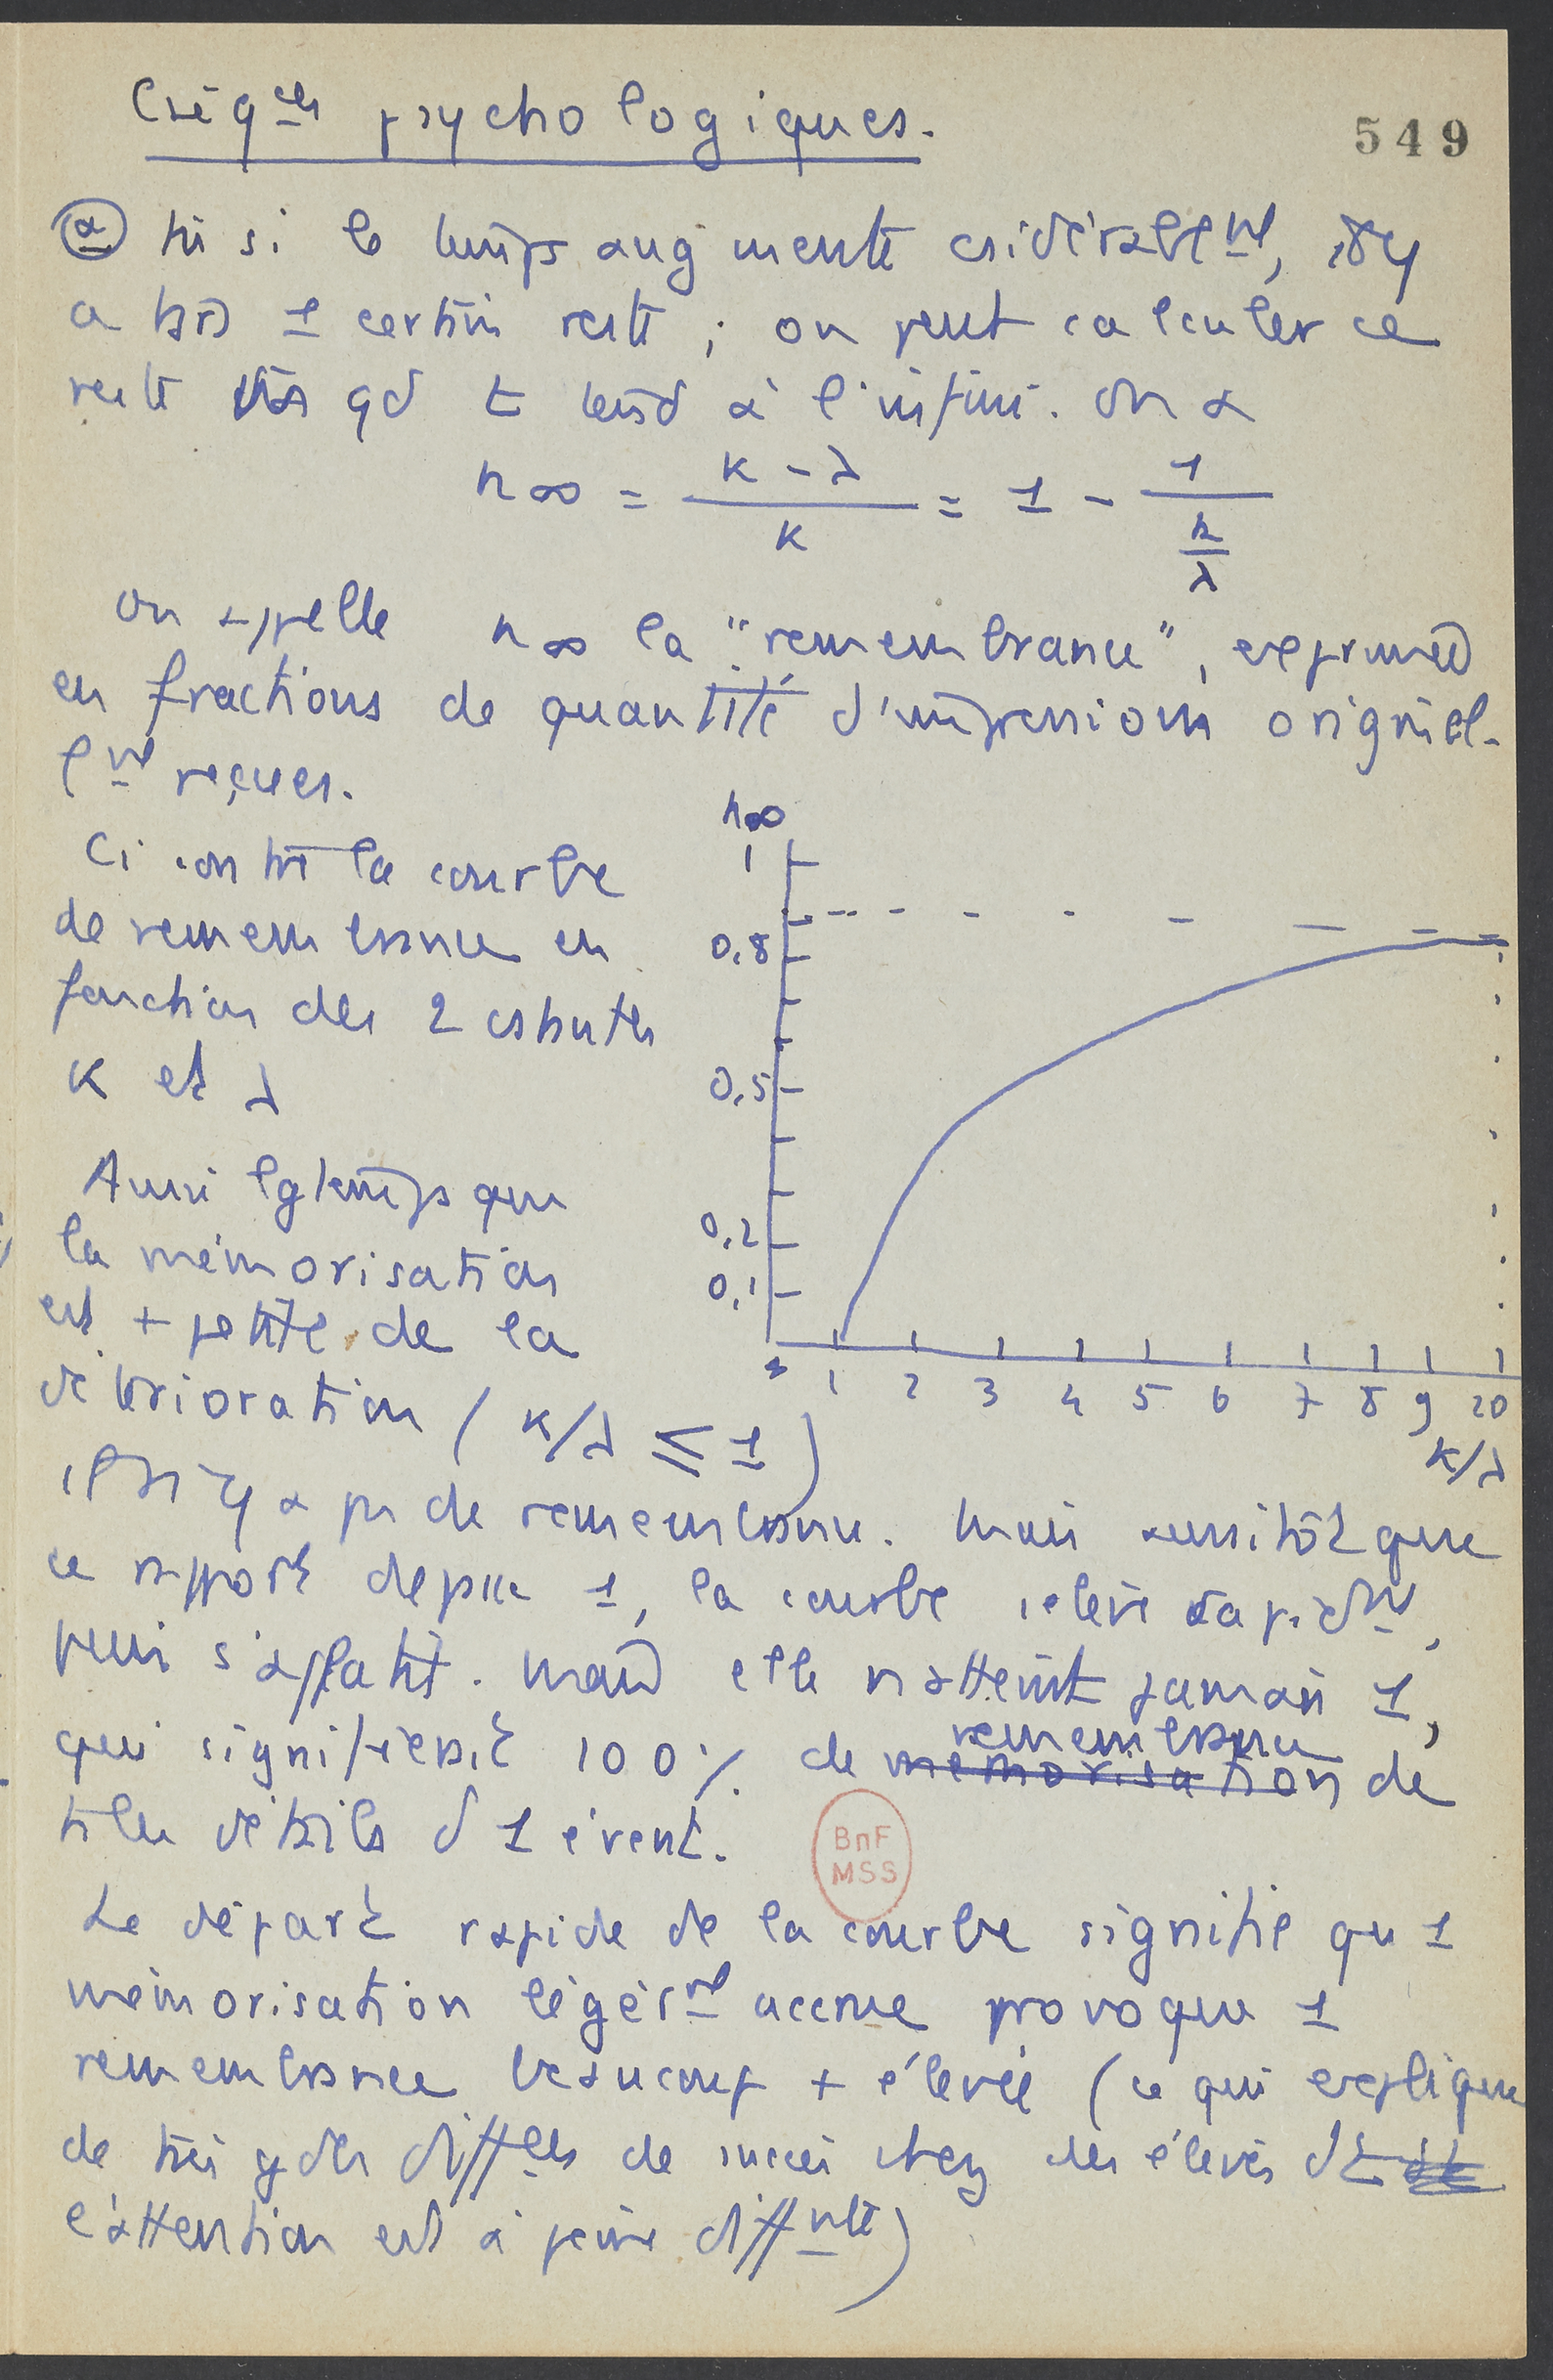 Cséq^ces psychologiques.
549
α m si le temps augmente csidérablem^t, il y
a ts 1 certain reste ; on peut calculer ce
reste qd t tend à l'infini. On a
n∞ = K - λ / K = 1 - 1 / k/λ
On appelle n∞ la "remembrance", exprimée
en fractions de quantité d'impressions originel-
lem^t reçues.
Ci contre la courbe
de remembrance en
fonction des 2 cstantes
K et λ
n∞
1
0,8
0,5
0,2
0,1
1 2 3 4 5 6 7 8 9 10
K/λ
Aussi lgtemps que
la mémorisation
est + petite de la
détérioration (K/λ ≤ 1)
il n'y a pas de remembrance. Mais aussitôt que
ce rapport dépasse 1, la courbe s'élève rapid^t,
puis s'aplatit. Mais elle n'atteint jamais 1,
qui signifierait 100% de remembrance de
ts les détails d 1 évent.
BnF
MSS
Le départ rapide de la courbe signifie qu 1
mémorisation légèr^mt accrue provoque 1
remembrance beaucoup + élevée (ce qui explique
de très gdes diff^ces de succès chez des élèves dt
l'attention est à peine diff^nte)